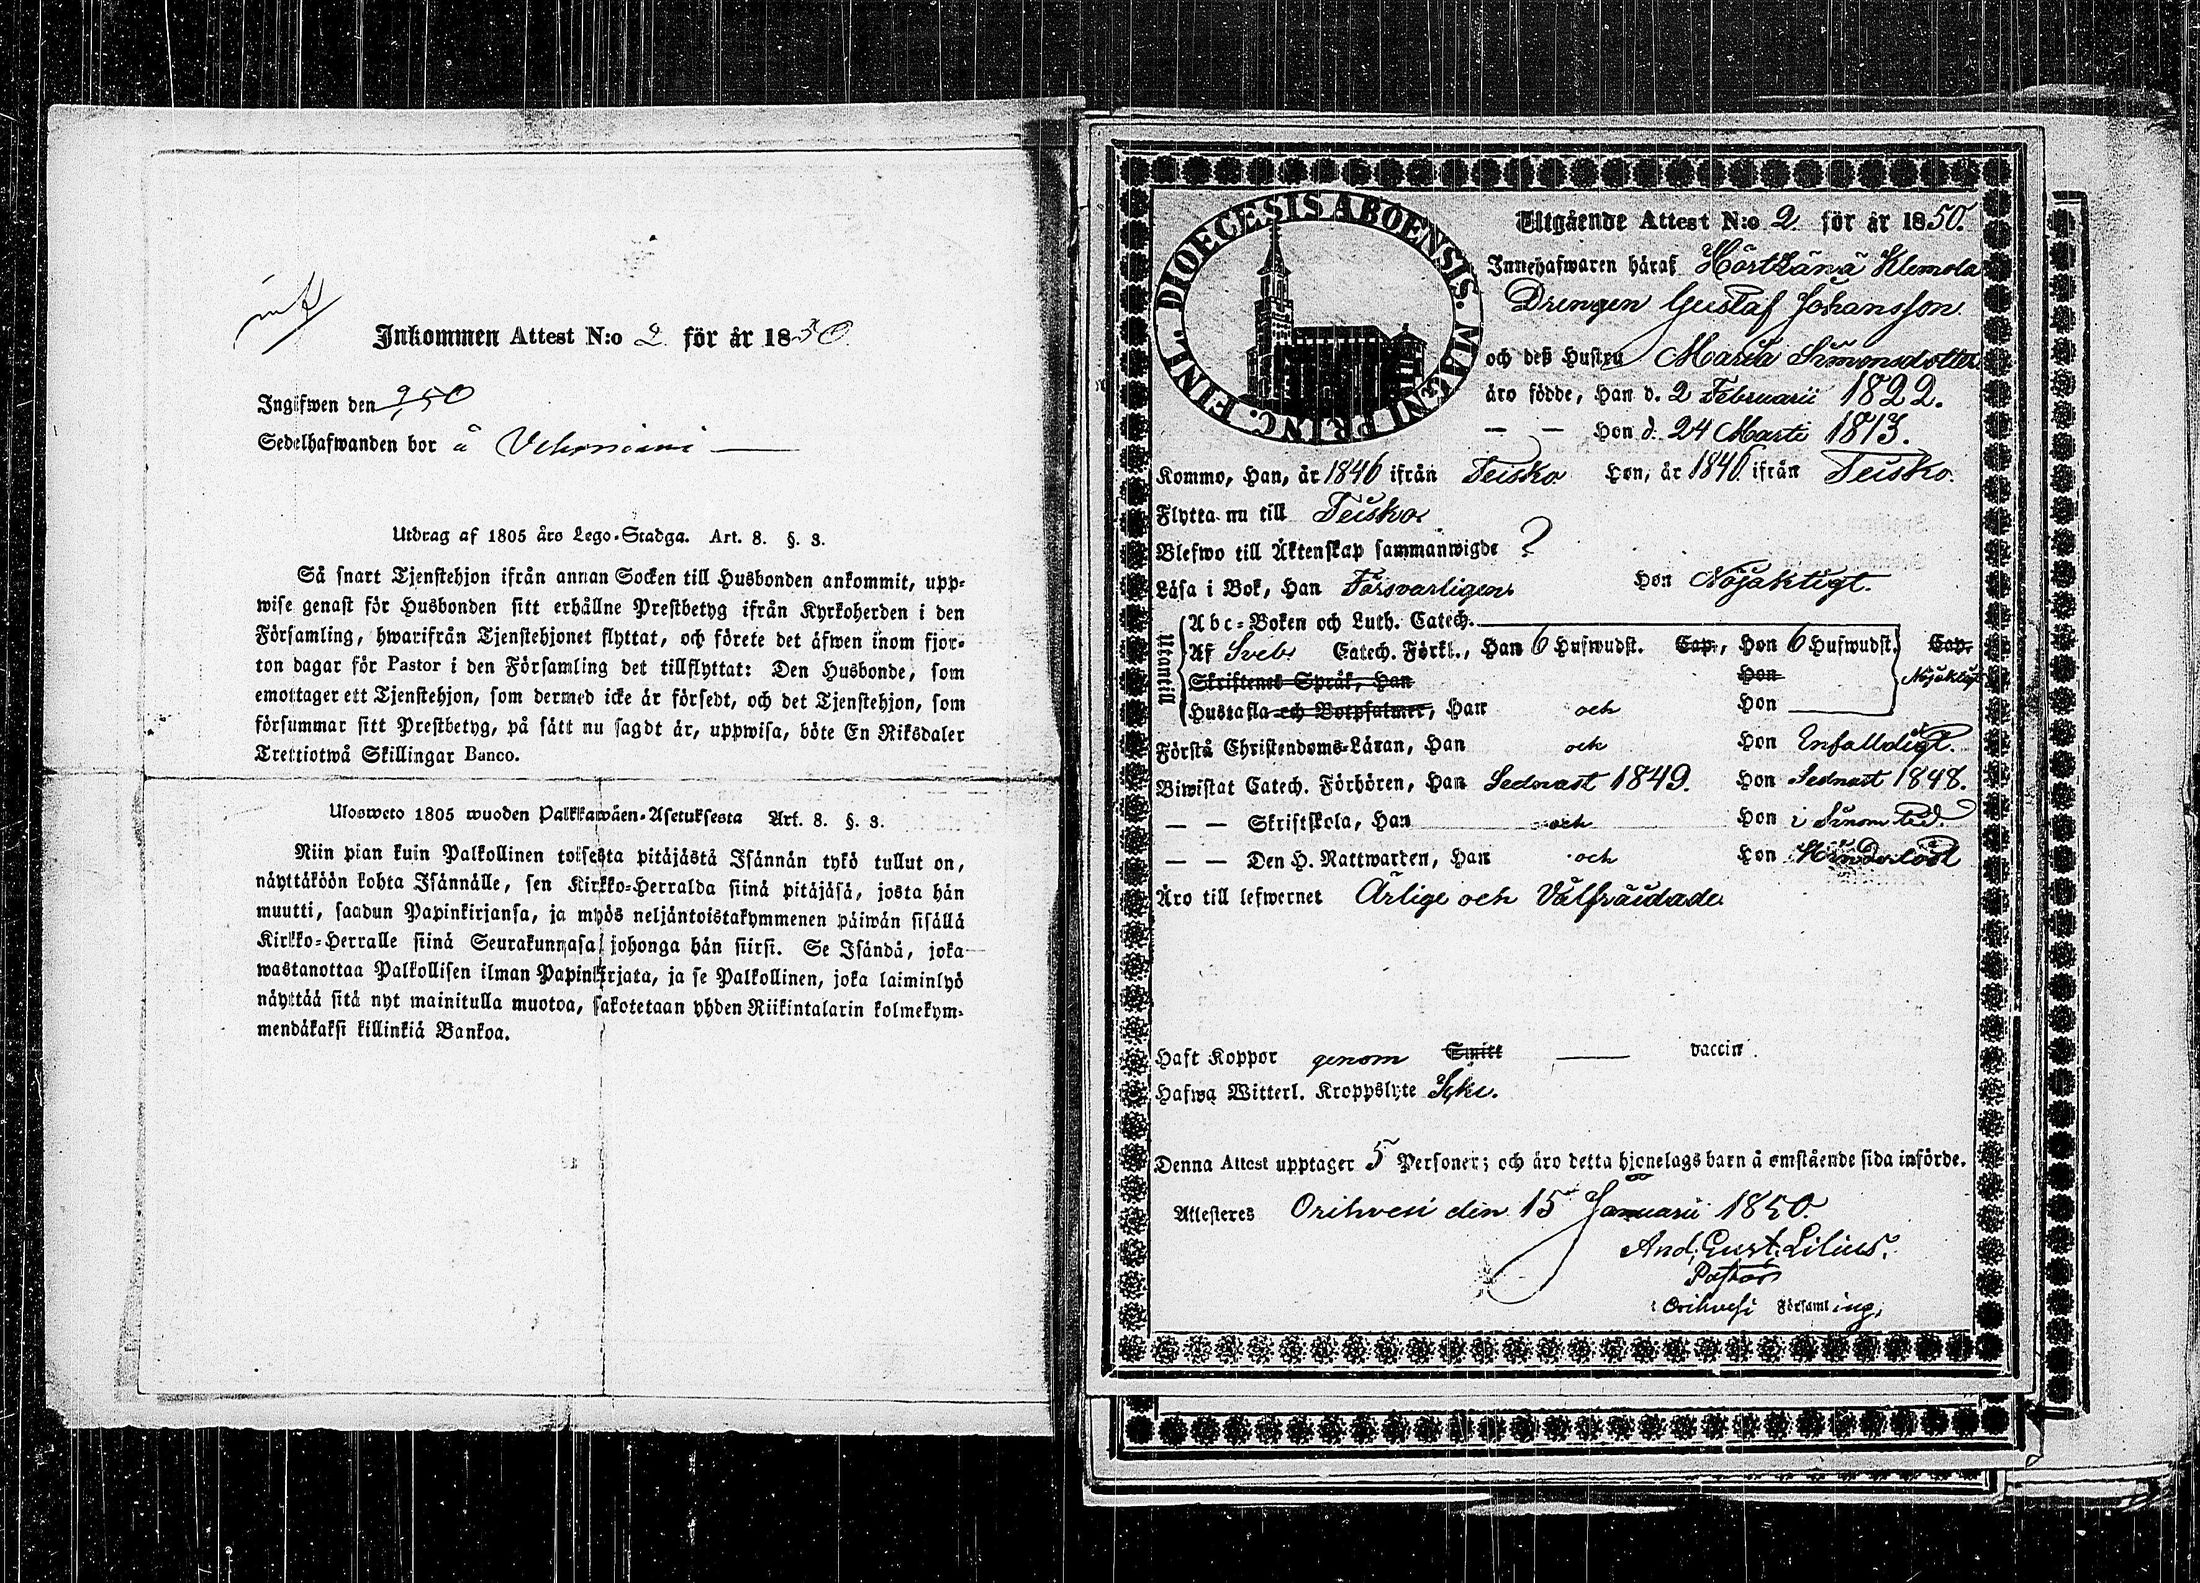 Inkommen Attest N:o 2 för år 1850.
Ingifwen den
Sedelhafwanden bor å
Utdrag af 1805 års Lego-Stadga. Art. 8. §. 3.
Så snart Tjenstehjon ifrån annan Socken till Husbonden ankommit, upp-
wise genast för Husbonden sitt erhållne Prestbetyg ifrån Kyrkoherden i den
Församling, hwarifrån Tjenstehjonet flyttat, och förete det äfwen inom fjor-
ton dagar för Pastor i den Församling det tillflyttat: Den Husbonde, som
emottager ett Tjenstehjon, som dermed icke är försedt, och det Tjenstehjon, som
försummar sitt Prestbetyg, på sätt nu sagdt är, uppwisa, böte En Riksdaler
Trettiotwå Skillingar Banco.
Ulosweto 1805 wuoden Palkkawäen-Asetuksesta Art. 8. §. 3.
Niin pian kuin Palkollinen toisesta pitäjästä Isännän tykö tullut on,
näyttäköön kohta Isännälle, sen Kirkko-Herralda siinä pitäjäsä, josta hän
muutti, saadun Papinkirjansa, ja myös neljäntoistakymmenen päiwän sisällä
Kirkko-Herralle siinä Seurakunnasa, johonga hän siirsi. Se Isändä, joka
wastanottaa Palkollisen ilman Papinkirjata, ja se Palkollinen, joka laiminlyö
näyttää sitä nyt mainitulla muotoa, sakotetaan yhden Riikintalarin kolmekym-
mendäkaksi killinkiä Bankoa.
DIOECESIS ABOENSIS. MAGNI PRINC. FINL.
Utgående Attest N:o 2 för år 1850.
Innehafwaren häraf Klemola
Drengen Gustaf Johansson
och deß Hustru Maria Simonsdotter
äro födde, Han d. 2 Februarii 1822.
— — Hon d. 24 Marti 1813.
Kommo, Han, år 1846 ifrån Teisko Hon, år 1846 ifrån Teisko.
Flytta nu till Teisko
Blefwo till Äktenskap sammanwigde ?
Läsa i Bok, Han Försvarligen Hon Nöjaktigt.
Utantill
Abc-Boken och Luth. Catech.
Af Sveb. Catech. Förkl., Han 6 Hufwudst. Cap., Hon 6 Hufwudst. Cap.
Skriftenes Språk, Han Hon Nöjaktigt
Hustafla och Botpsalmer, Han och Hon
Förstå Christendoms-Läran, Han och Hon Enfalldigt.
Biwistat Catech. Förhören, Han Sednast 1849. Hon Sednast 1848.
— — Skriftskola, Han och Hon i sinom tid.
— — Den H. Nattwarden, Han och Hon
Äro till lefwernet Ärlige och Välfräjdade
Haft Koppor genom Smitt — vaccin
Hafwa Witterl. Kroppslyte Icke.
Denna Attest upptager 5 Personer; och äro detta hjonelags barn å omstående sida införde.
Attesteres Orihvesi den 15 Januarii 1850.
And. Gust. Lilius.
Pastor
i Orihvesi Församling.